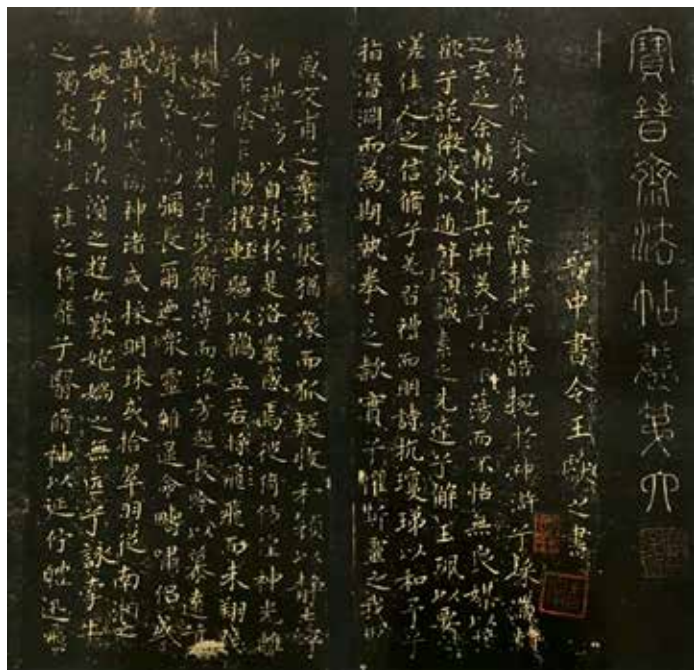 寶晉齋法帖卷第六
晉中書令王獻之書
嬉左倚采旄右蔭桂旗攘皓腕於神滸兮采湍瀨
之玄芝余情悅其淑美兮心振蕩而不怡無良媒以接
懽兮託微波以通辭願誠素之先達兮解玉珮以要
嗟佳人之信脩兮羌習禮而明詩抗瓊珶以和予兮
指潛淵而為期執拳=之款實兮懼斯靈之我欺
感交甫之棄言悵猶豫而狐疑收和顏以靜志兮
申禮防以自持於是洛靈感焉徙倚仿偟神光離
合乍陰乍陽擢輕軀以鶴立若將飛而未翔踐
椒塗之郁烈兮步衡薄而流芳超長吟以慕遠兮
聲哀厲而彌長爾迺衆靈雜遝命疇嘯侶或
戲清流或翔神渚或採明珠或拾翠羽從南湘之
二妃兮攜漢濱之遊女歎匏媧之無匹兮詠牽牛
之獨處揚輕袿之猗靡兮翳脩袖以延佇體迅飛